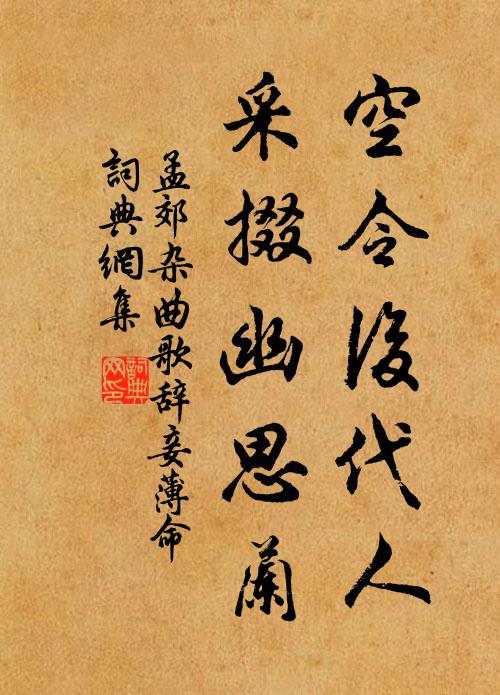 空令後代人
采掇幽思蘭
孟郊杂曲歌辞妾薄命
詞典網集
詞典網印